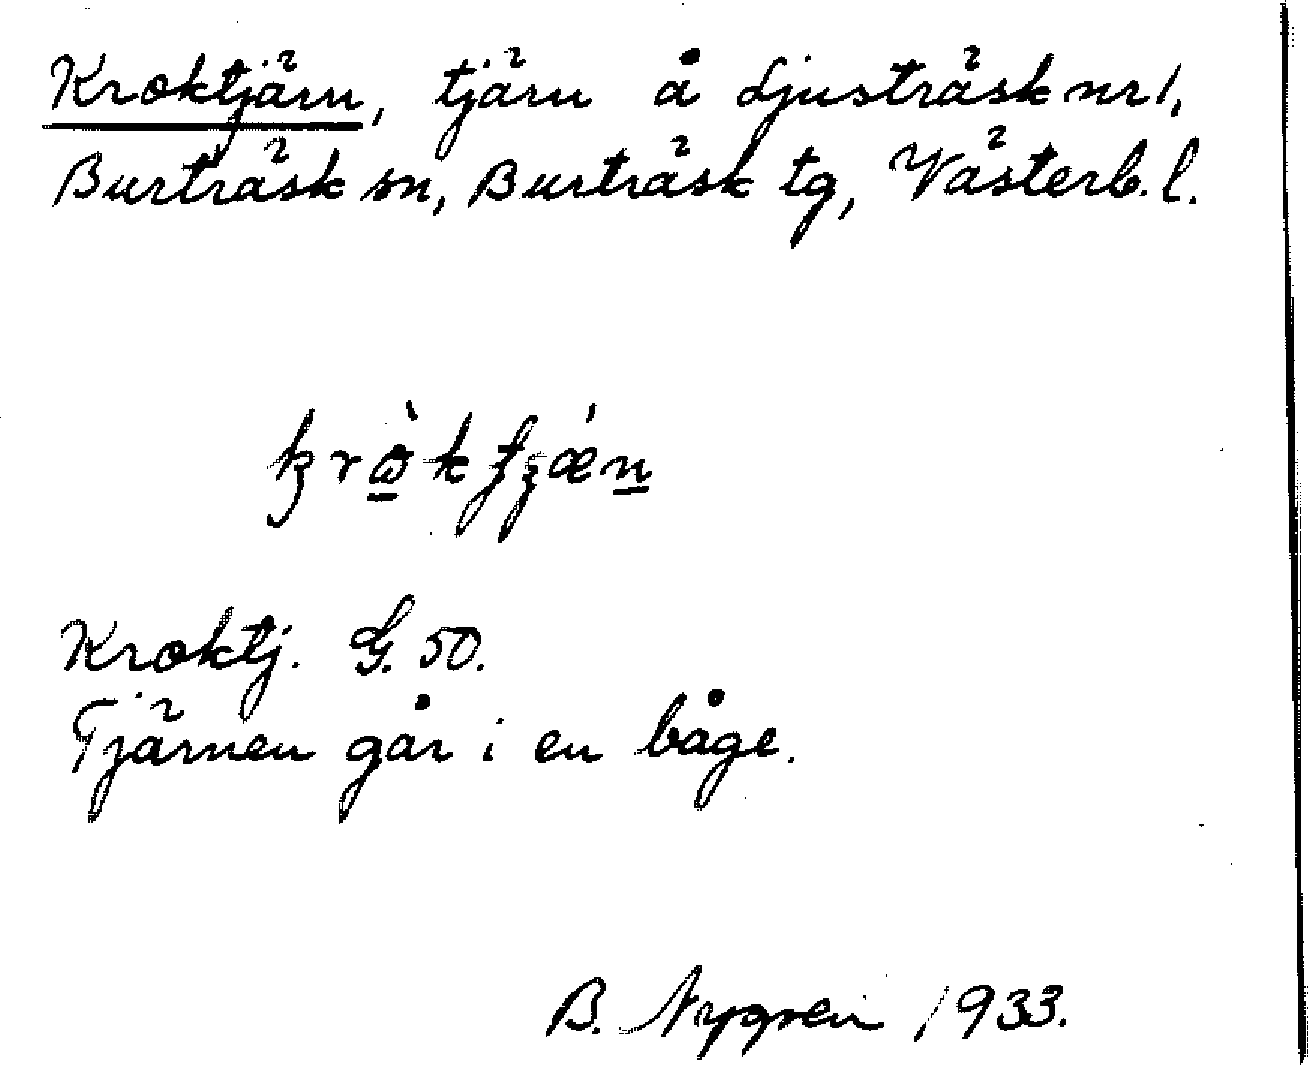 Kroktjärn, tjärn å Ljusträsk nr 1,
Burträsk sn, Burträsk tg, Västerb. l.
Kroktj. G. 50.
Tjärnen går i en båge.
B. Nygren 1933.